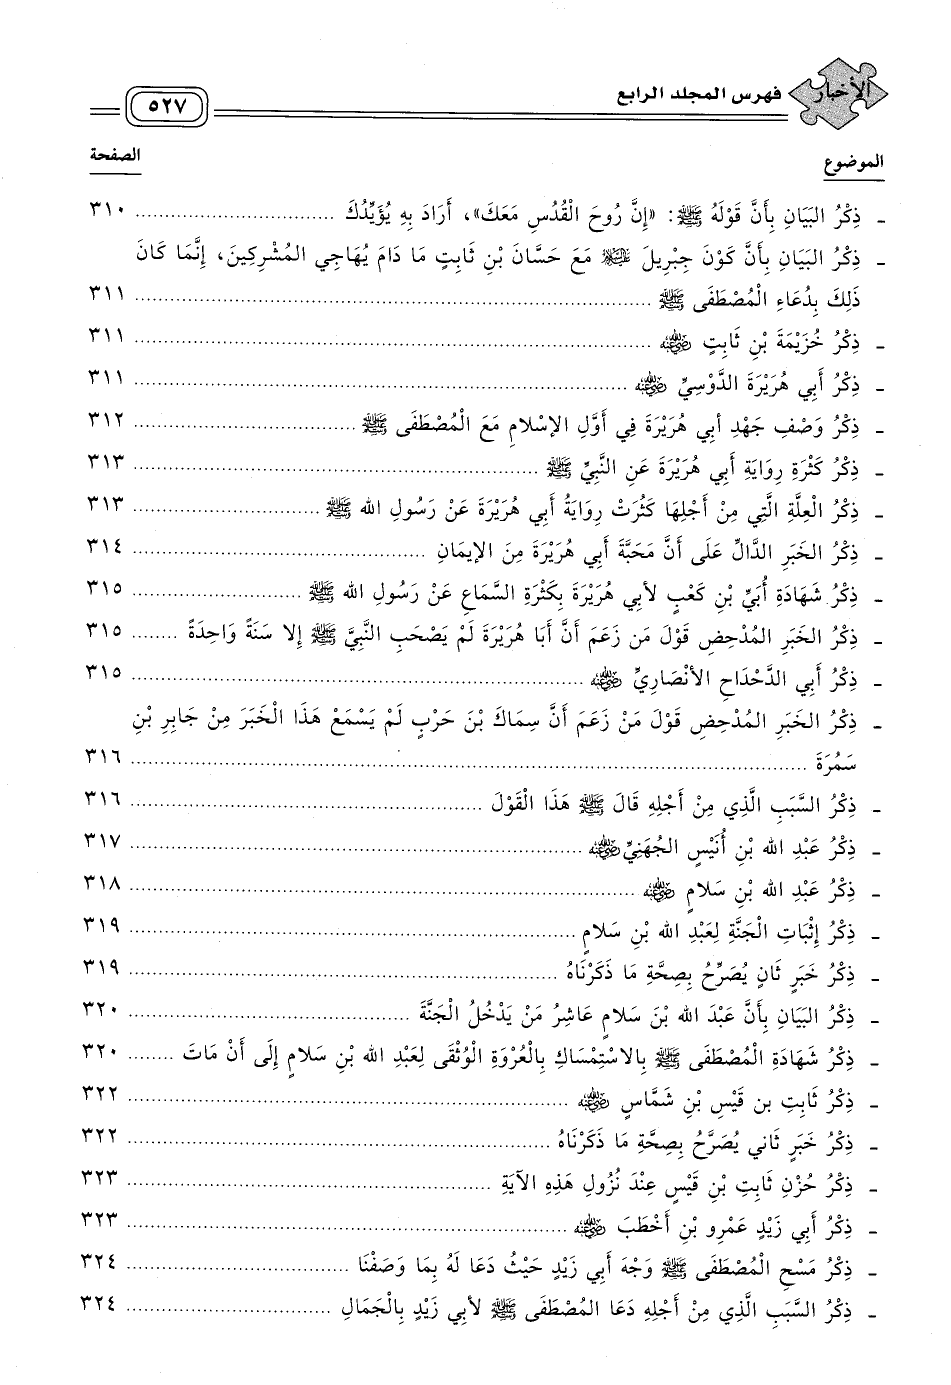 الأخبار
فهرس المجلد الرابع
٥٢٧
الموضوع
الصفحة
- ذِكْرُ البَيَانِ بِأَنَّ قَوْلَهُ ﷺ: «إِنَّ رُوحَ الْقُدُسِ مَعَكَ»، أَرَادَ بِهِ يُؤَيِّدُكَ ................ ٣١٠
- ذِكْرُ البَيَانِ بِأَنَّ كَوْنَ جِبْرِيلَ عَلَيْهِ السَّلَام مَعَ حَسَّانَ بْنِ ثَابِتٍ مَا دَامَ يُهَاجِي المُشْرِكِينَ، إِنَّمَا كَانَ
ذَلِكَ بِدُعَاءِ الْمُصْطَفَى ﷺ ................ ٣١١
- ذِكْرُ خُزَيْمَةَ بْنِ ثَابِتٍ رضي الله عنه ................ ٣١١
- ذِكْرُ أَبِي هُرَيْرَةَ الدَّوْسِيِّ رضي الله عنه ................ ٣١١
- ذِكْرُ وَصْفِ جَهْدِ أَبِي هُرَيْرَةَ فِي أَوَّلِ الإِسْلامِ مَعَ الْمُصْطَفَى ﷺ ................ ٣١٢
- ذِكْرُ كَثْرَةِ رِوَايَةِ أَبِي هُرَيْرَةَ عَنِ النَّبِيِّ ﷺ ................ ٣١٣
- ذِكْرُ الْعِلَّةِ الَّتِي مِنْ أَجْلِهَا كَثُرَتْ رِوَايَةُ أَبِي هُرَيْرَةَ عَنْ رَسُولِ الله ﷺ ................ ٣١٣
- ذِكْرُ الخَبَرِ الدَّالِّ عَلَى أَنَّ مَحَبَّةَ أَبِي هُرَيْرَةَ مِنَ الإِيمَانِ ................ ٣١٤
- ذِكْرُ شَهَادَةِ أُبَيِّ بْنِ كَعْبٍ لأَبِي هُرَيْرَةَ بِكَثْرَةِ السَّمَاعِ عَنْ رَسُولِ الله ﷺ ................ ٣١٥
- ذِكْرُ الخَبَرِ المُدْحِضِ قَوْلَ مَن زَعَمَ أَنَّ أَبَا هُرَيْرَةَ لَمْ يَصْحَبِ النَّبِيَّ ﷺ إِلا سَنَةً وَاحِدَةً ........ ٣١٥
- ذِكْرُ أَبِي الدَّحْدَاحِ الأَنْصَارِيِّ رضي الله عنه ................ ٣١٥
- ذِكْرُ الخَبَرِ المُدْحِضِ قَوْلَ مَنْ زَعَمَ أَنَّ سِمَاكَ بْنَ حَرْبٍ لَمْ يَسْمَعْ هَذَا الْخَبَرَ مِنْ جَابِرِ بْنِ
سَمُرَةَ ................ ٣١٦
- ذِكْرُ السَّبَبِ الَّذِي مِنْ أَجْلِهِ قَالَ ﷺ هَذَا الْقَوْلَ ................ ٣١٦
- ذِكْرُ عَبْدِ الله بْنِ أُنَيْسٍ الجُهَنِيِّ رضي الله عنه ................ ٣١٧
- ذِكْرُ عَبْدِ الله بْنِ سَلامٍ رضي الله عنه ................ ٣١٨
- ذِكْرُ إِثْبَاتِ الْجَنَّةِ لِعَبْدِ الله بْنِ سَلامٍ ................ ٣١٩
- ذِكْرُ خَبَرٍ ثَانٍ يُصَرِّحُ بِصِحَّةِ مَا ذَكَرْنَاهُ ................ ٣١٩
- ذِكْرُ البَيَانِ بِأَنَّ عَبْدَ الله بْنَ سَلامٍ عَاشِرُ مَنْ يَدْخُلُ الْجَنَّةَ ................ ٣٢٠
- ذِكْرُ شَهَادَةِ الْمُصْطَفَى ﷺ بِالاسْتِمْسَاكِ بِالْعُرْوَةِ الْوُثْقَى لِعَبْدِ الله بْنِ سَلامٍ إِلَى أَنْ مَاتَ ........ ٣٢٠
- ذِكْرُ ثَابِتِ بن قَيْسِ بْنِ شَمَّاسٍ رضي الله عنه ................ ٣٢٢
- ذِكْرُ خَبَرٍ ثَانِي يُصَرِّحُ بِصِحَّةِ مَا ذَكَرْنَاهُ ................ ٣٢٢
- ذِكْرُ حُزْنِ ثَابِتِ بْنِ قَيْسٍ عِنْدَ نُزُولِ هَذِهِ الآيَةِ ................ ٣٢٣
- ذِكْرُ أَبِي زَيْدٍ عَمْرِو بْنِ أَخْطَبَ رضي الله عنه ................ ٣٢٣
- ذِكْرُ مَسْحِ الْمُصْطَفَى ﷺ وَجْهَ أَبِي زَيْدٍ حَيْثُ دَعَا لَهُ بِمَا وَصَفْنَا ................ ٣٢٤
- ذِكْرُ السَّبَبِ الَّذِي مِنْ أَجْلِهِ دَعَا المُصْطَفَى ﷺ لأَبِي زَيْدٍ بِالْجَمَالِ ................ ٣٢٤